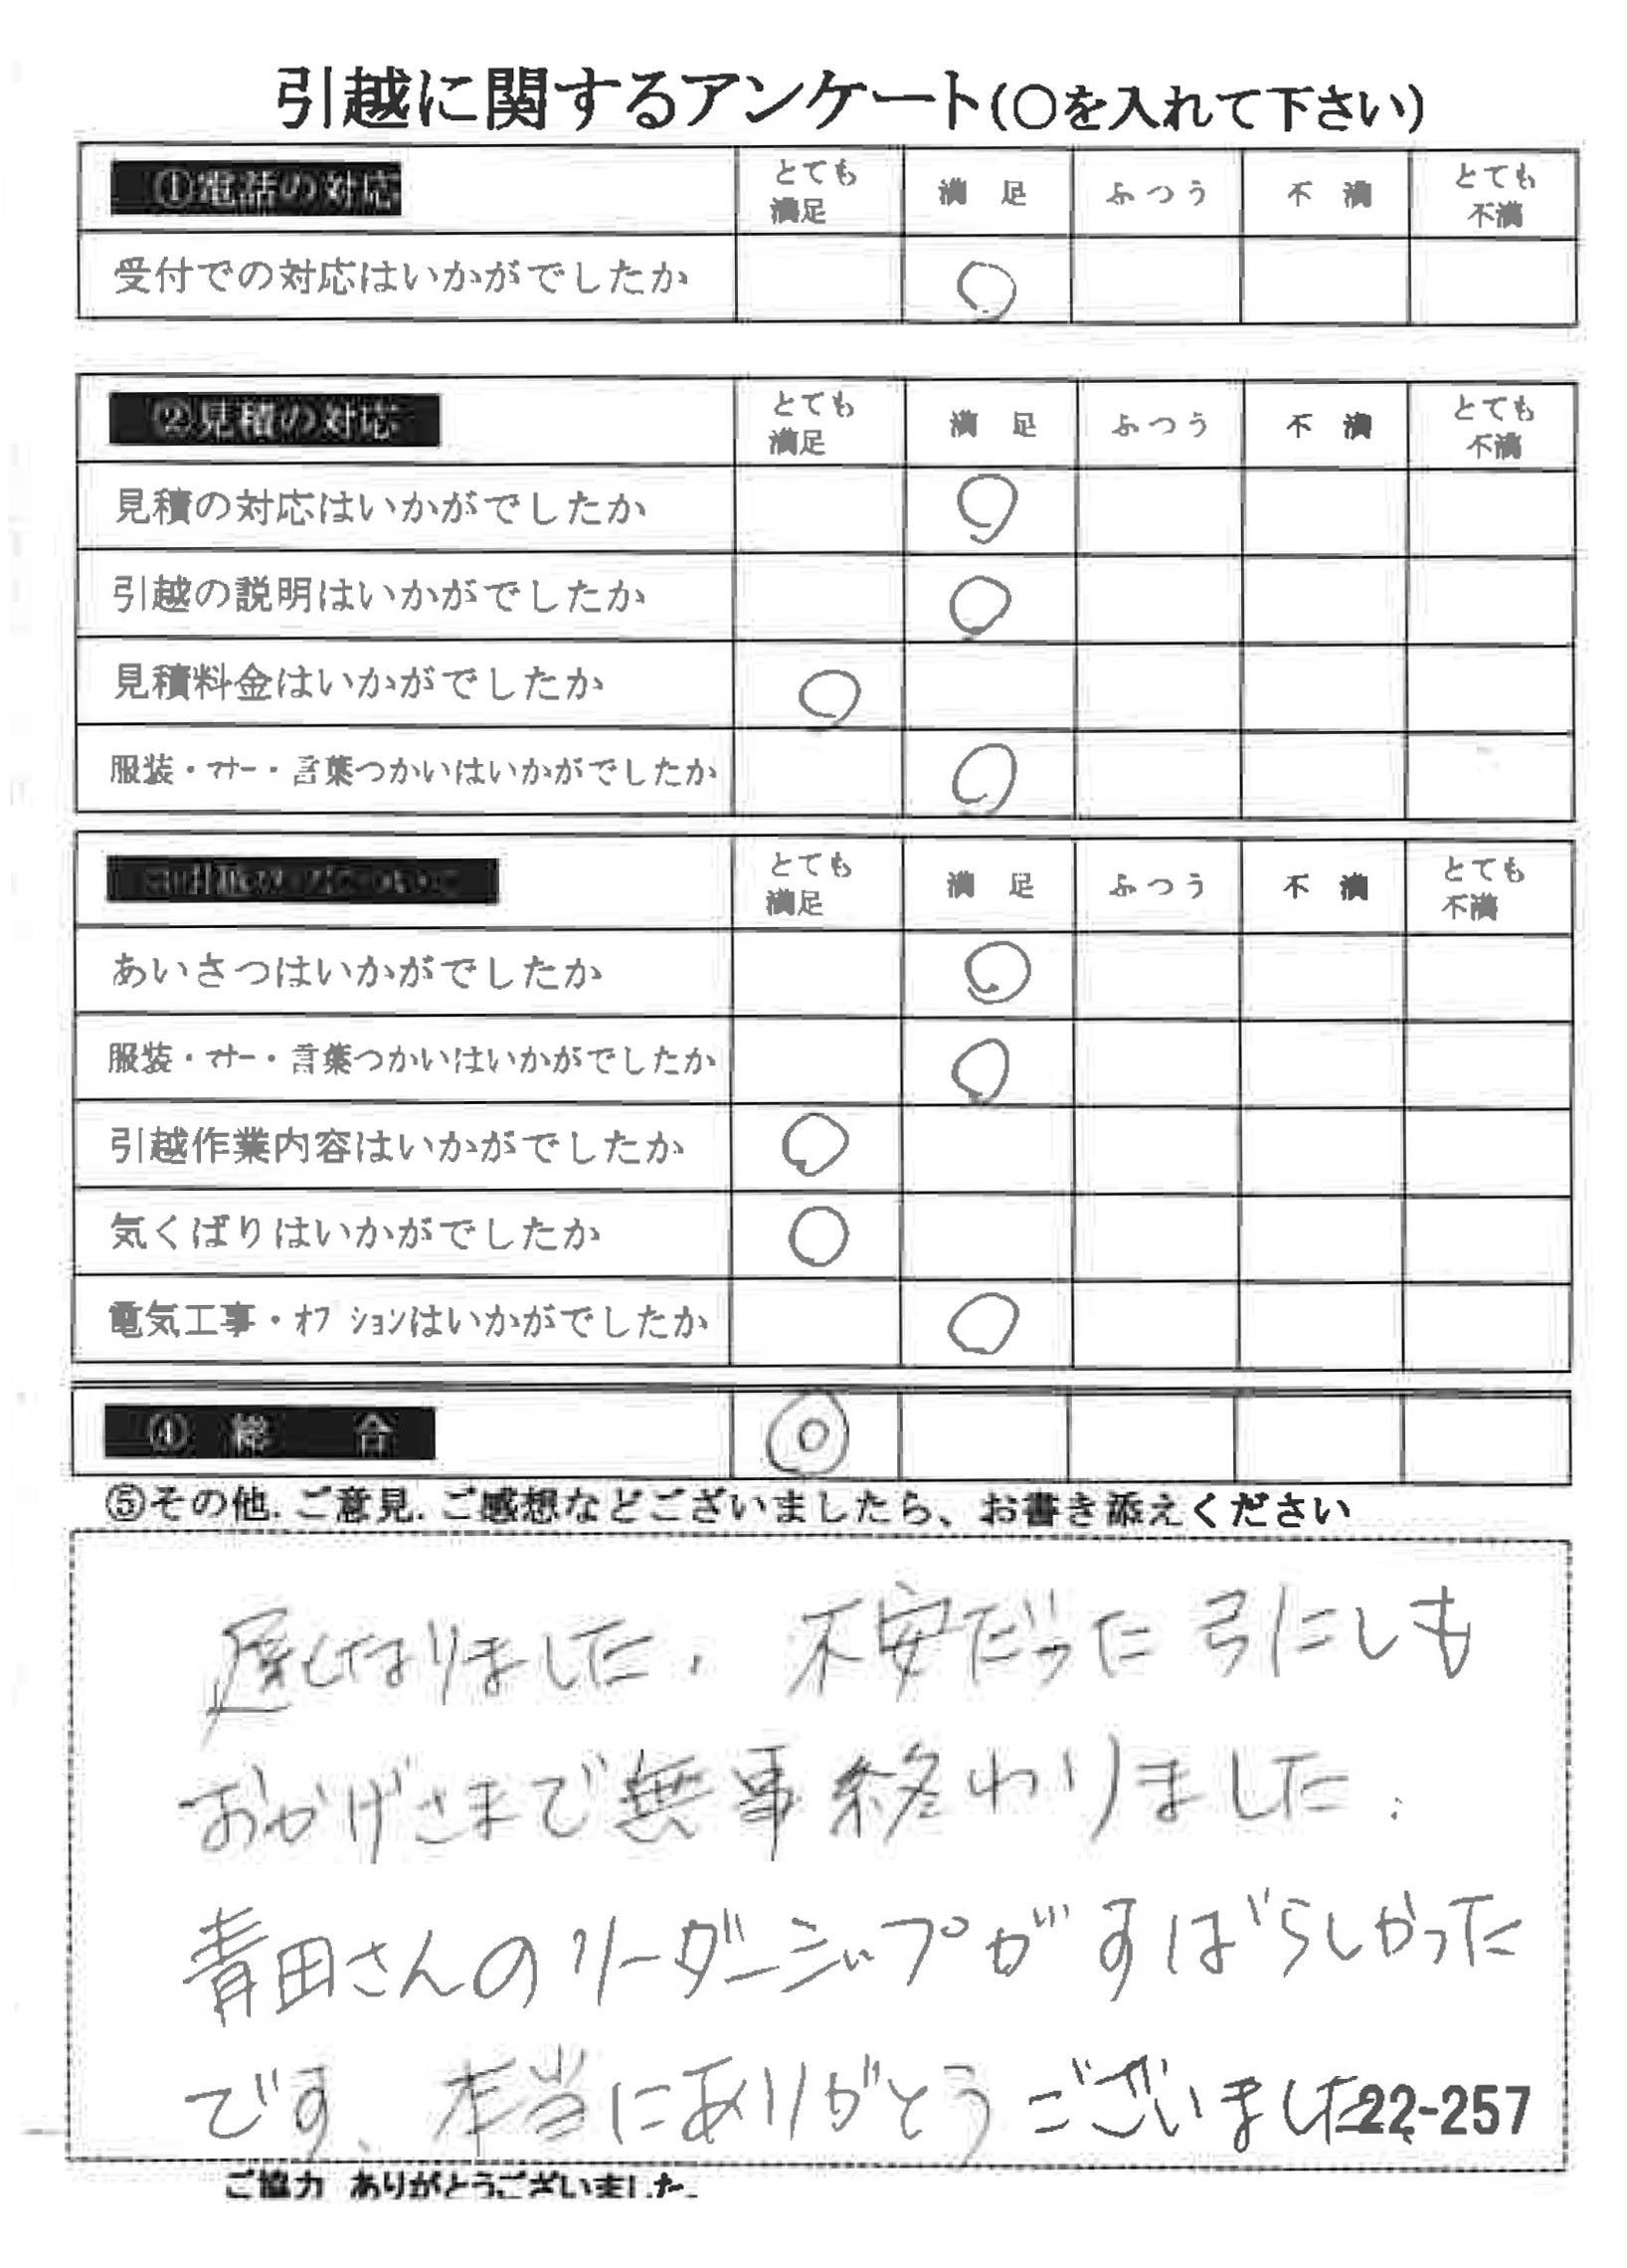 引越に関するアンケート(○を入れて下さい)
①電話の対応 とても満足 満足 ふつう 不満 とても不満
受付での対応はいかがでしたか ○
②見積の対応 とても満足 満足 ふつう 不満 とても不満
見積の対応はいかがでしたか ○
引越の説明はいかがでしたか ○
見積料金はいかがでしたか ○
服装・マナー・言葉つかいはいかがでしたか ○
とても満足 満足 ふつう 不満 とても不満
あいさつはいかがでしたか ○
服装・マナー・言葉つかいはいかがでしたか ○
引越作業内容はいかがでしたか ○
気くばりはいかがでしたか ○
電気工事・オプションはいかがでしたか ○
④総合 ◎
⑤その他.ご意見.ご感想などございましたら、お書き添えください
遅くなりました. 不安だった引こしも
おかげさまで無事終わりました.
青田さんのリーダーシップがすばらしかった
です、本当にありがとうございました
22-257
ご協力 ありがとうございました.